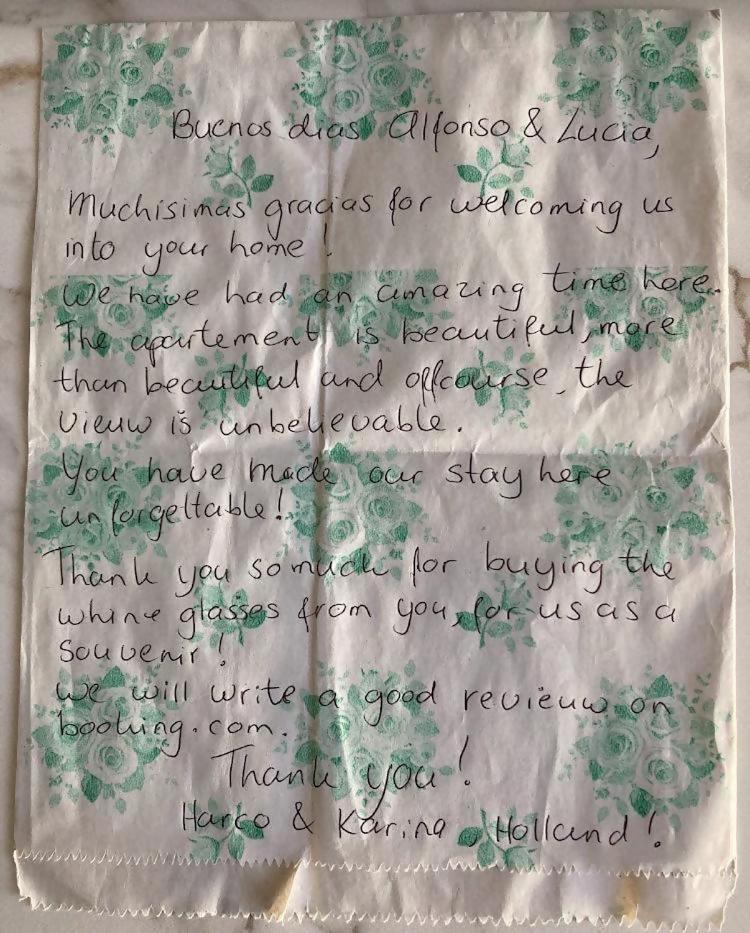 Buenos dias Alfonso & Lucia,
Muchísimas gracias for welcoming us
into your home!
We have had an amazing time here.
The apartement is beautiful, more
than beautiful and offcourse, the
vieuw is unbelievable.
You have made our stay here
unforgettable!
Thank you so much for buying the
whine glasses from you, for us as a
souvenir!
We will write a good revieuw on
booking.com.
Thank you!
Harco & Karina, Holland!